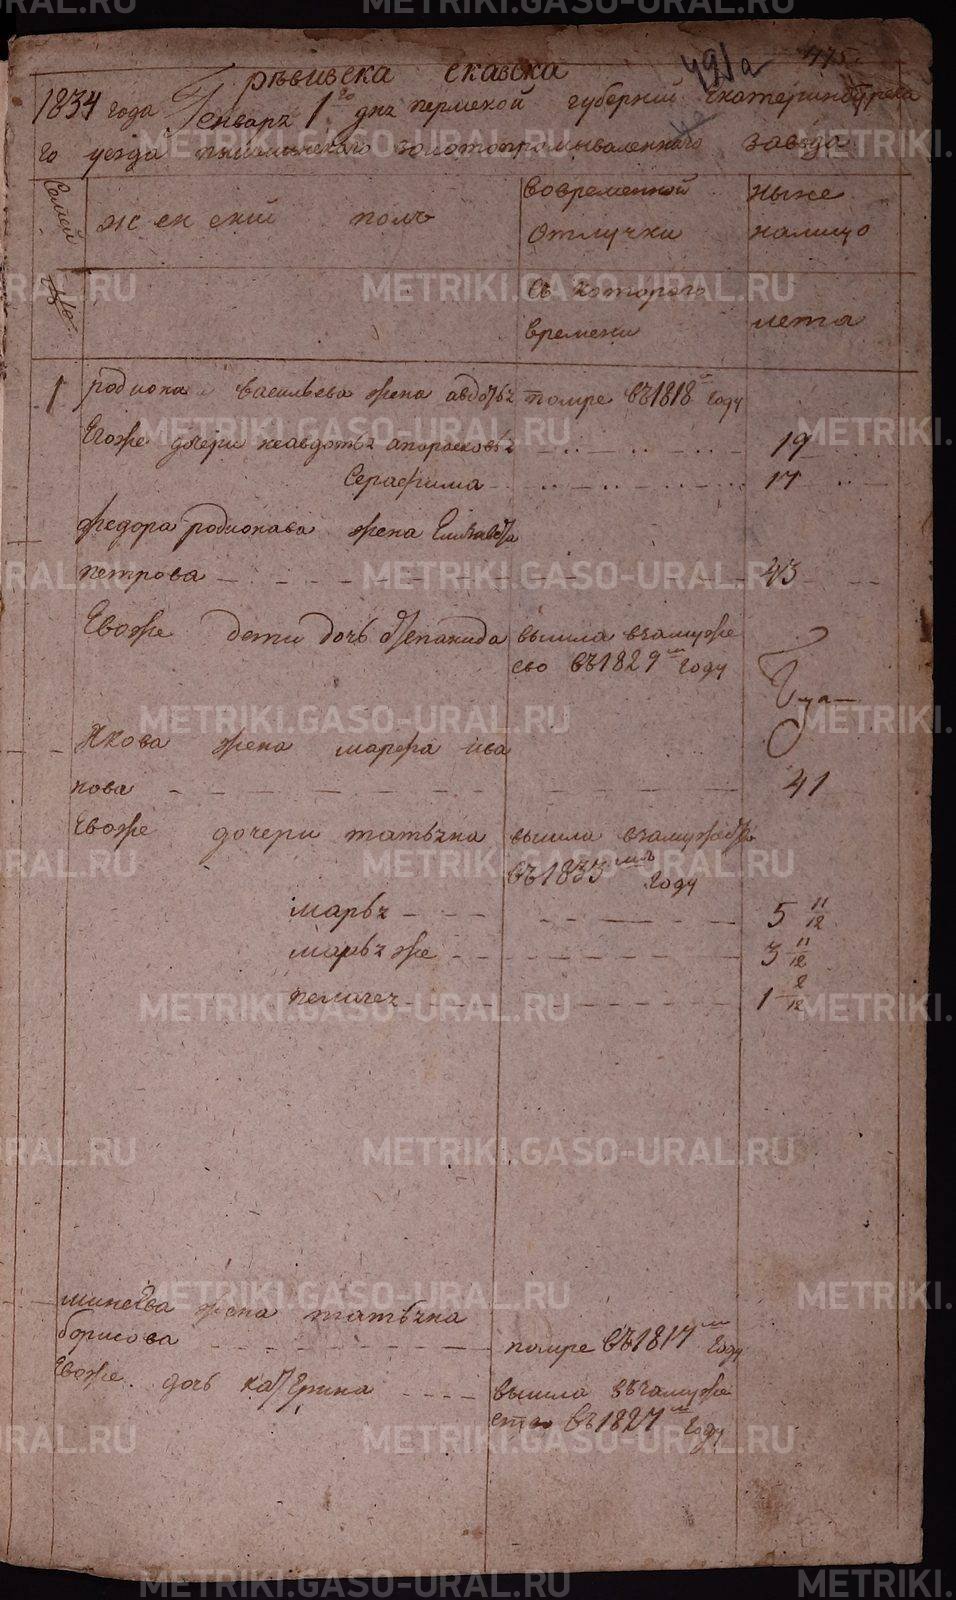 475
491а
рѣвизска скаска
1834 года Генваря 1го дня пермской губерніи Екатеринбургска
го уезда пышминскаго золотопромываленнаго завода
Семей
№
женский полъ
вовременной
отлучки
ныне
налицо
съ которого
времени
лета
1 родиона васильева жена авдотья помре въ 1818м году
Евоже дочери неавдотья апорасковья 19
Серафима 17
федора родионава жена Елизавета
петрова 43
Евоже дети дочь Степанида вышла взамуже
сво въ 1829м году
Якова жена марфа ива
нова 41
Евоже дочери татьяна вышла взамужество
въ 1833мъ году
марья 5 11/12
марья же 3 11/12
пелагея 1 2/12
минеева жена татьяна
борисова помре въ 1817м году
Евоже дочь катерина вышла взамуже
ство въ 1827м году
METRIKI.GASO-URAL.RU